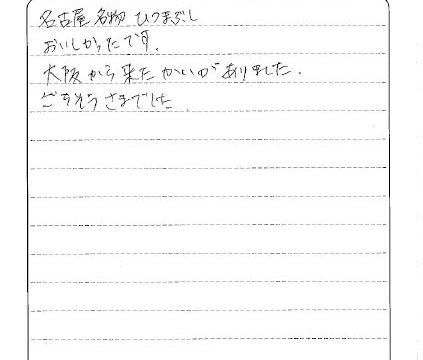 名古屋名物ひつまぶし
おいしかったです。
大阪から来たかいがありました。
ごちそうさまでした